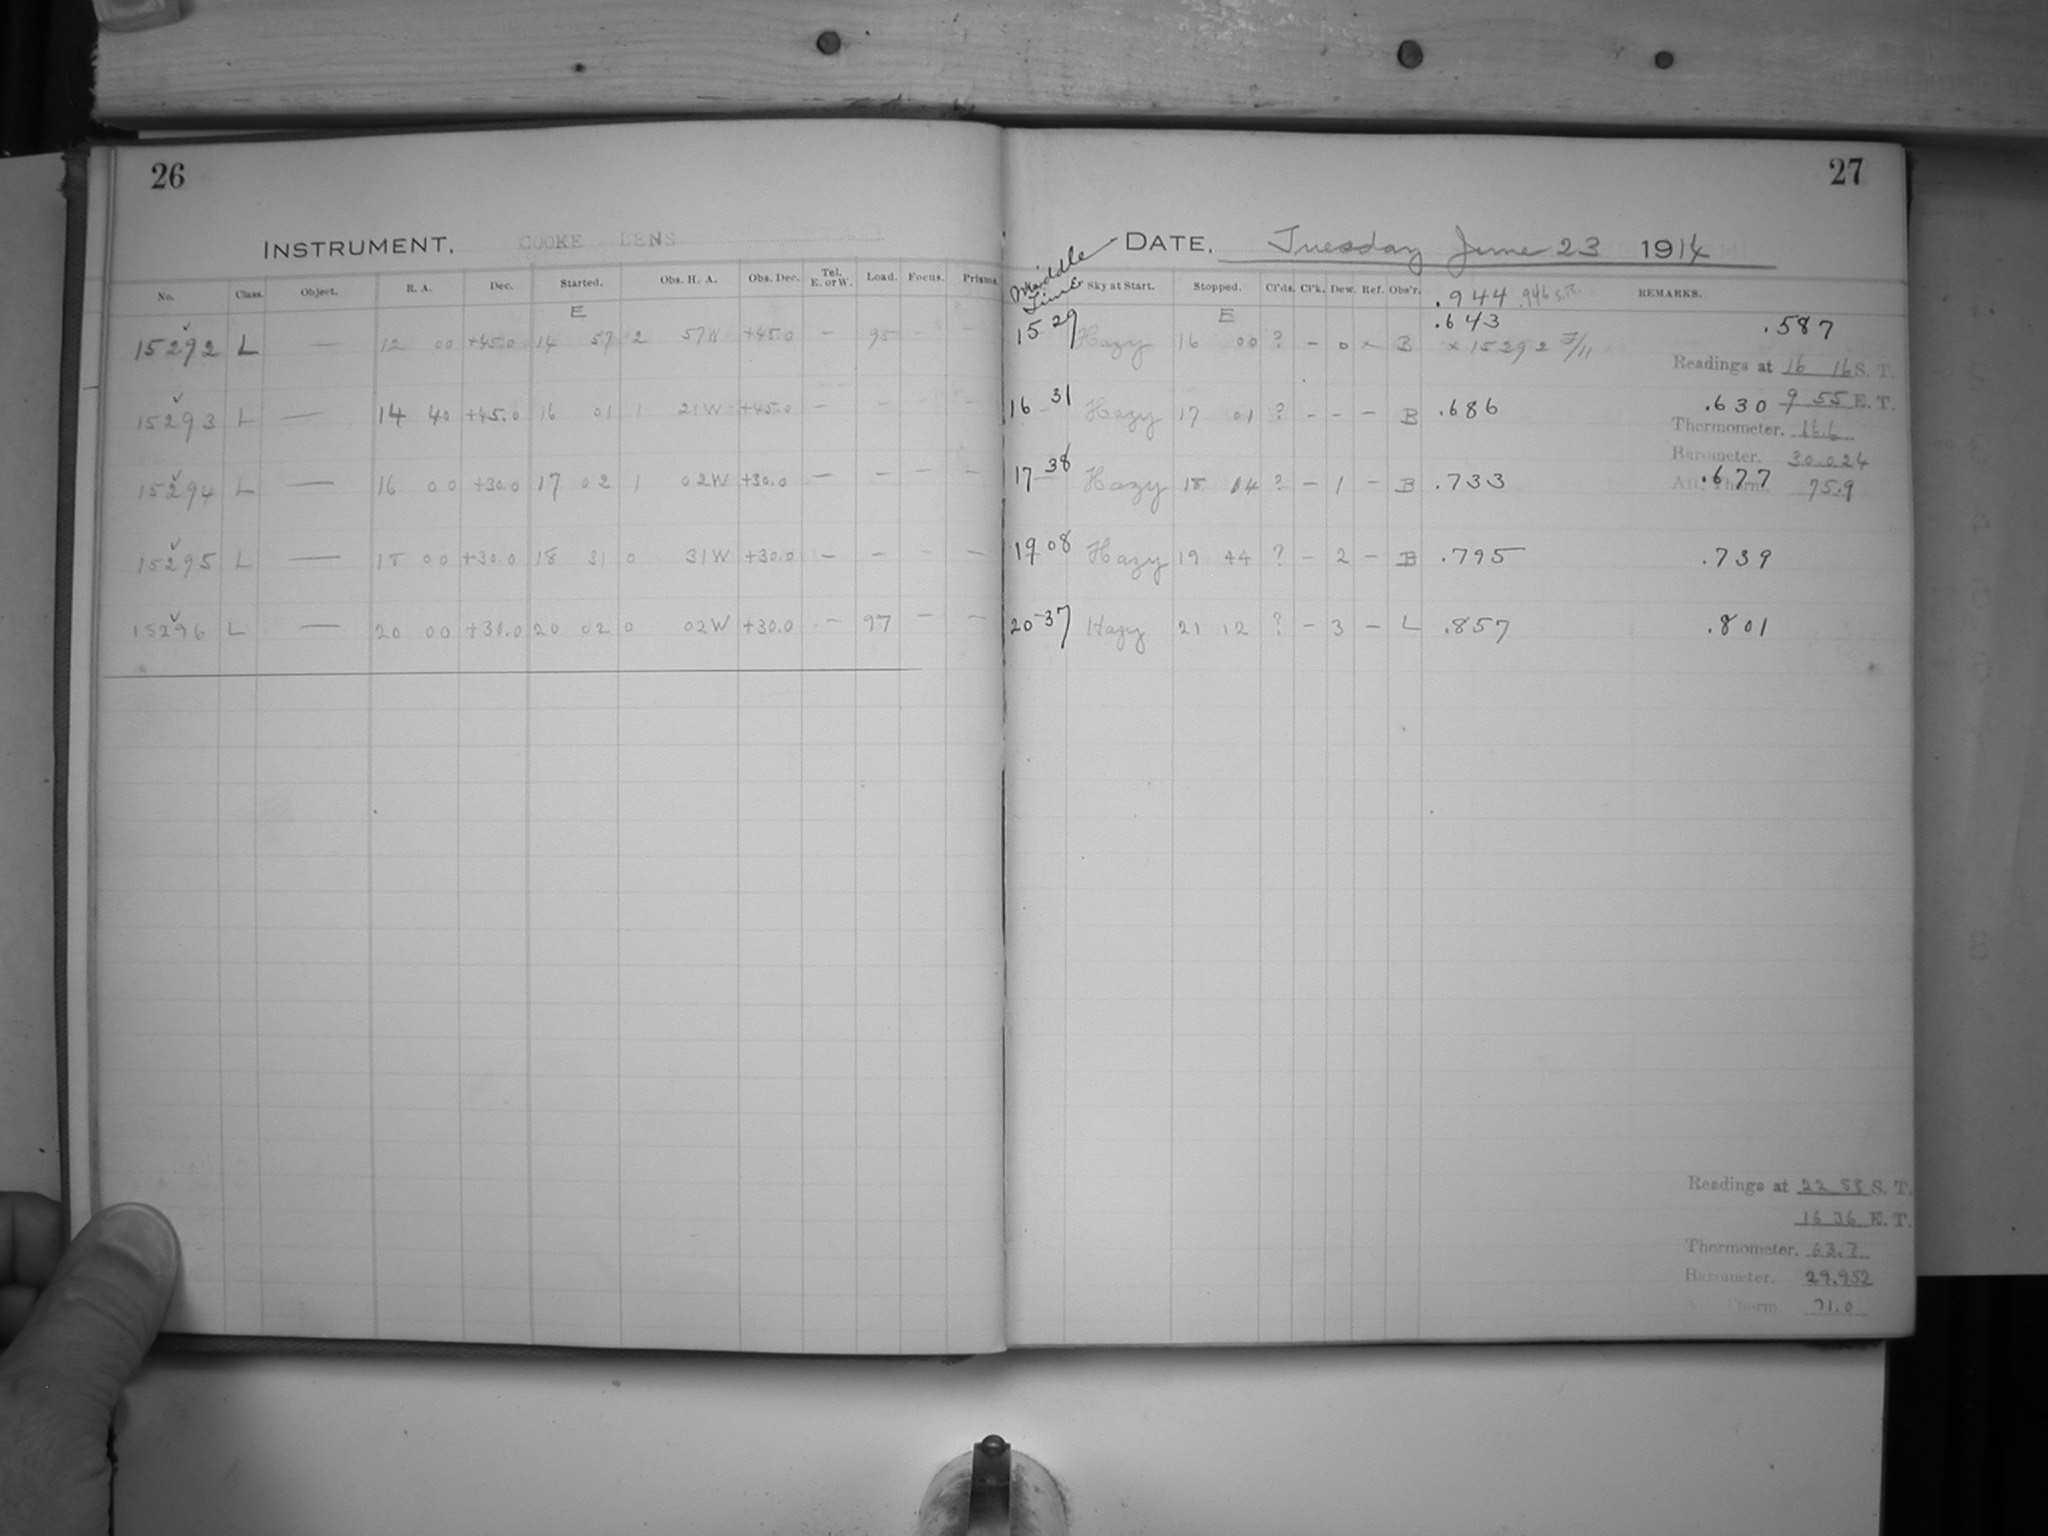 26
INSTRUMENT, COOKE LENS
No. Class. Object. R. A. Dec. Started. Obs. H. A. Obs. Dec. Tel. E. or W. Load. Focus. Prisms.
E
15292 L — 12 00 +45.0 14 57 2 57W +45.0 — 95 - -
15293 L — 14 40 +45.0 16 01 1 21W +45.0 — - - -
15294 L — 16 00 +30.0 17 02 1 02W +30.0 — - - -
15295 L — 18 00 +30.0 18 31 0 31W +30.0 — - - -
15296 L — 20 00 +30.0 20 02 0 02W +30.0 - 97 - -
27
DATE, Tuesday June 23 1914
Middle Time Sky at Start. Stopped. Cl'ds. Cl'k. Dew. Ref. Obs'r. .944 .946 S.R. REMARKS.
E
15 29 Hazy 16 00 ? - 0 x B .643 .587
x 15292 7/11
Readings at 16 16 S. T.
16 31 Hazy 17 01 ? - - - B .686 .630 9 55 E. T.
Thermometer.
Barometer. 30.024
17 38 Hazy 18 04 ? - 1 - B .733 .677
Att. Therm. 75.9
19 08 Hazy 19 44 ? - 2 - B .795 .739
20-37 Hazy 21 12 ? - 3 - L .857 .801
Readings at 22 58 S. T.
16 36 E. T.
Thermometer. 63.7
Barometer. 29.952
Therm. 71.0